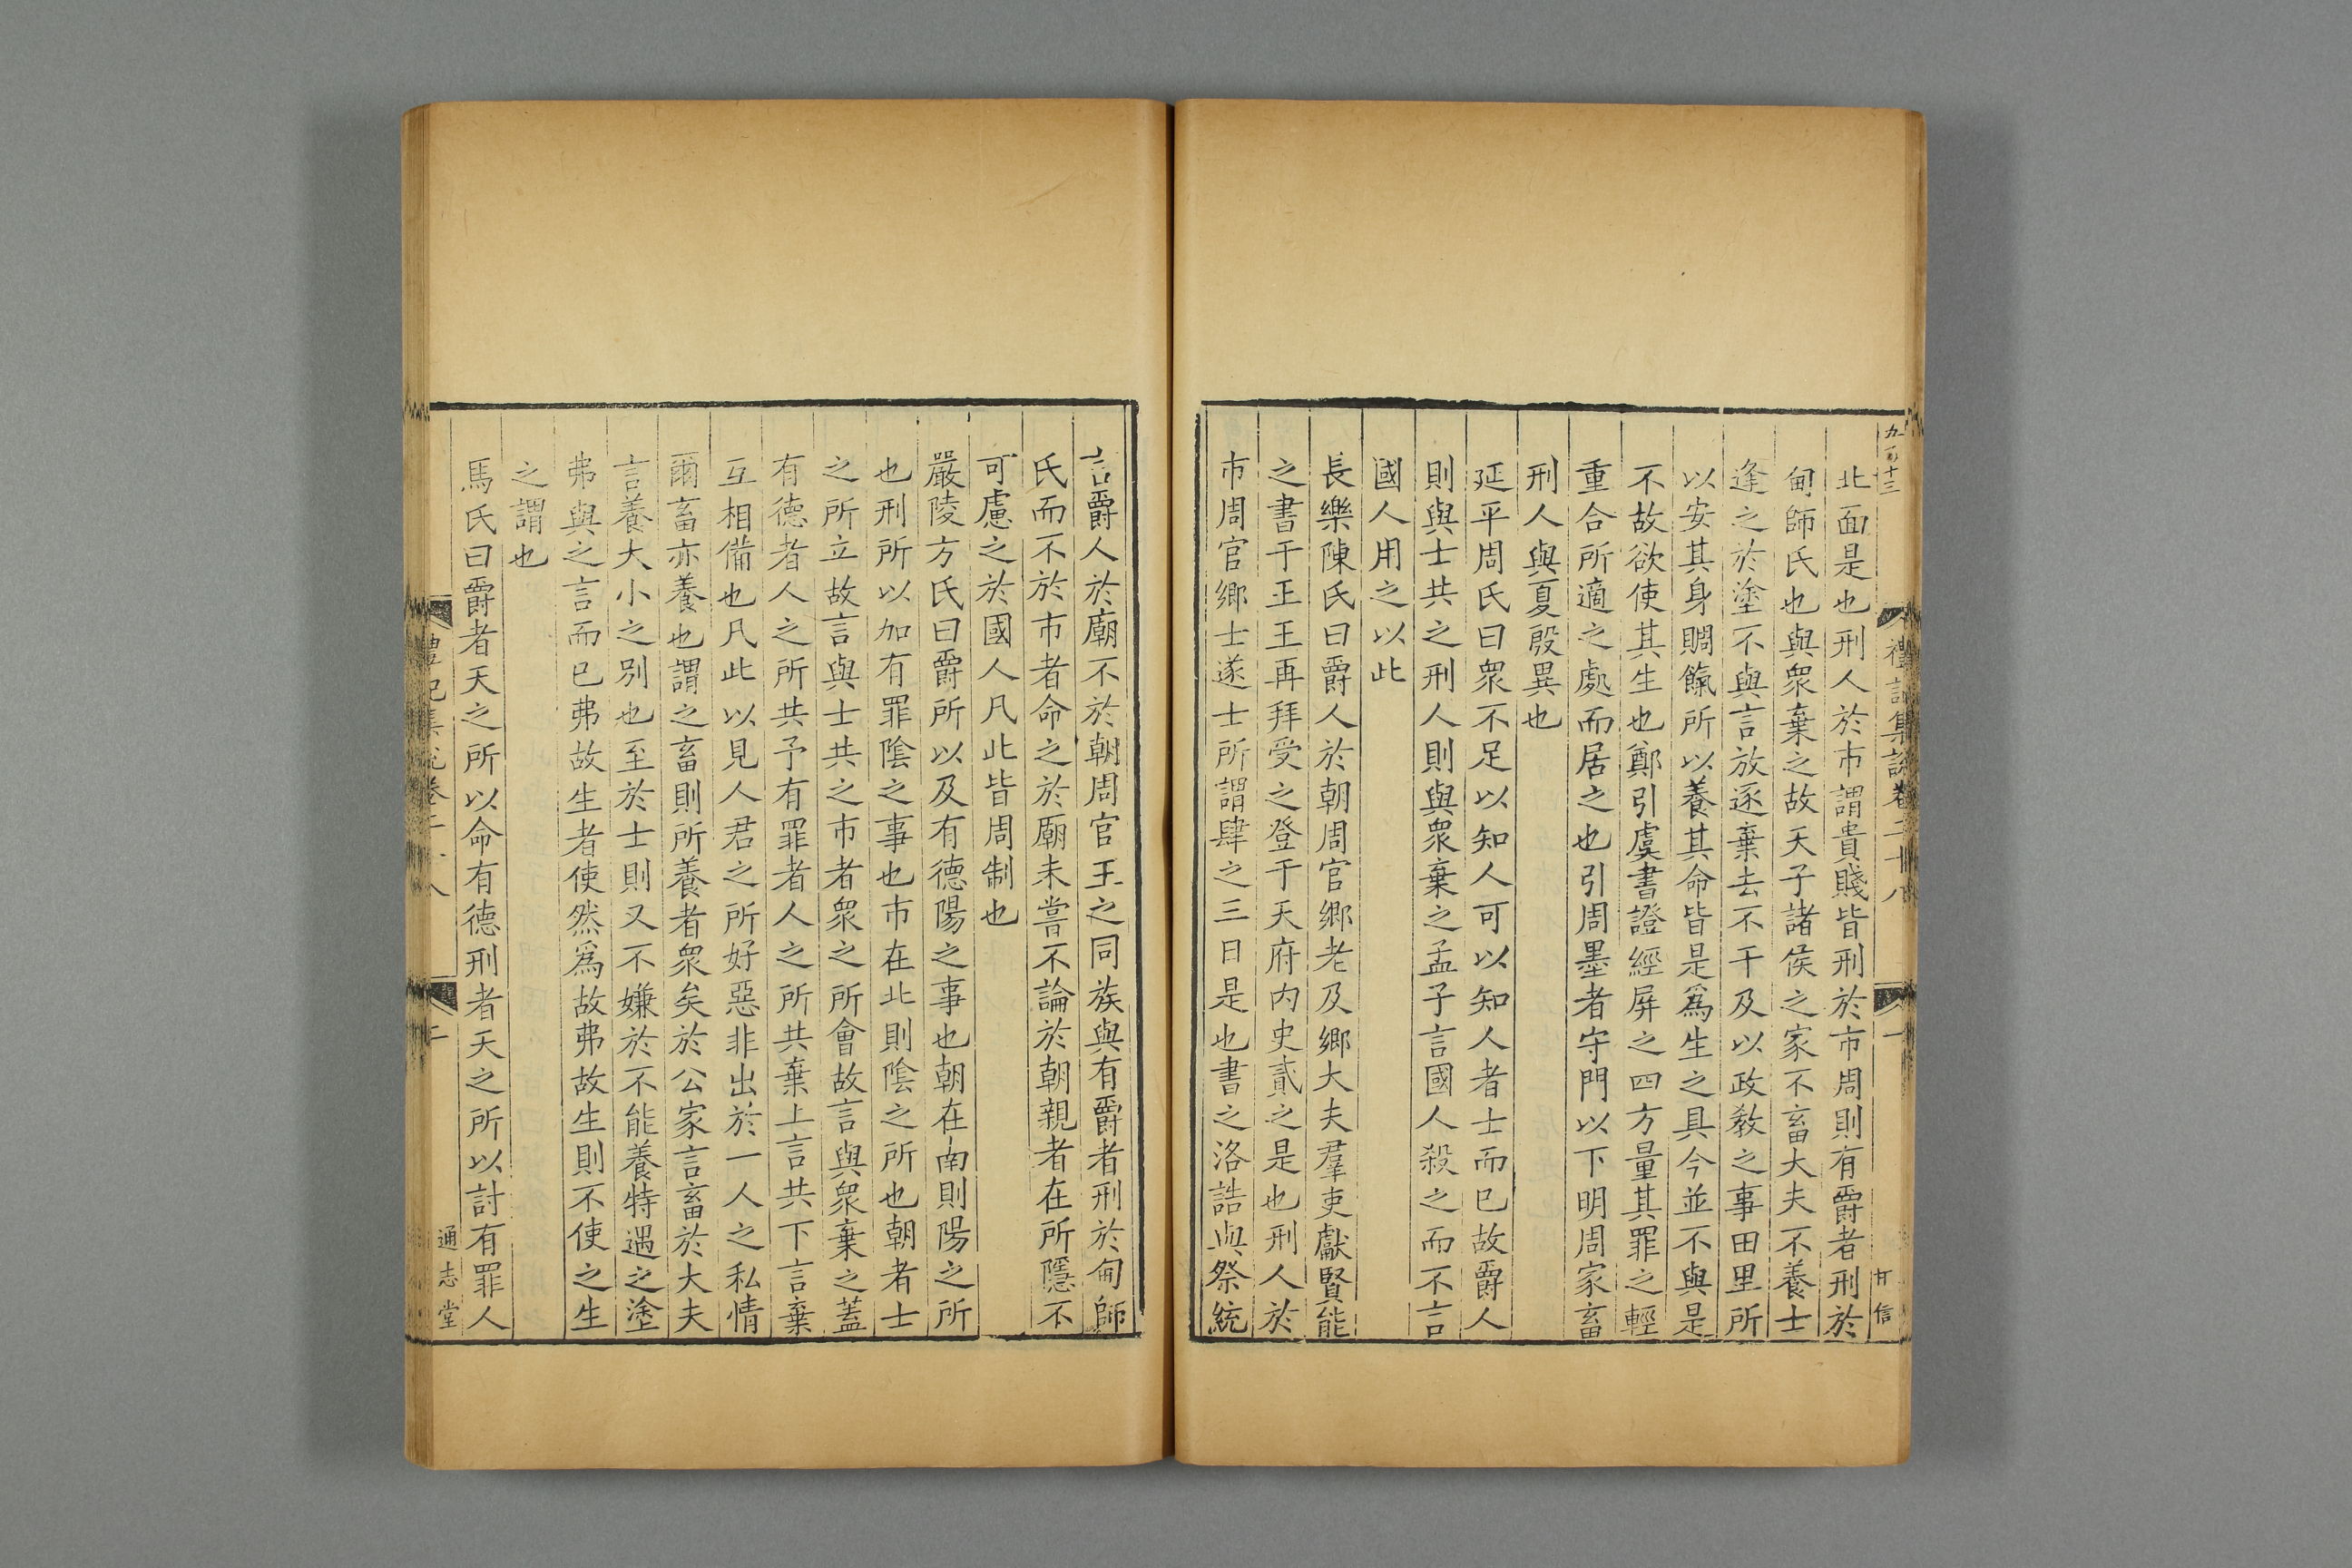 北面是也刑人於市謂貴賤皆刑於市周則有爵者刑於
甸師氏也與衆棄之故天子諸侯之家不畜大夫不養士
逢之於塗不與言放逐棄去不干及以政教之事田里所
以安其身賙餼所以養其命皆是爲生之具今並不與是
不故欲使其生也鄭引虞書證經屏之四方量其罪之輕
重合所適之處而居之也引周墨者守門以下明周家畜
刑人與夏殷異也
延平周氏曰衆不足以知人可以知人者士而已故爵人
則與士共之刑人則與衆棄之孟子言國人殺之而不言
國人用之以此
長樂陳氏曰爵人於朝周官鄉老及鄉大夫羣吏獻賢能
之書于王王再拜受之登于天府内史貳之是也刑人於
市周官鄉士遂士所謂肆之三日是也書之洛誥與祭統
言爵人於廟不於朝周官王之同族與有爵者刑於甸師
氏而不於市者命之於廟未嘗不論於朝親者在所隱不
可慮之於國人凡此皆周制也
嚴陵方氏曰爵所以及有德陽之事也朝在南則陽之所
也刑所以加有罪陰之事也市在北則陰之所也朝者士
之所立故言與士共之市者衆之所會故言與衆棄之蓋
有德者人之所共予有罪者人之所共棄上言共下言棄
互相備也凡此以見人君之所好惡非出於一人之私情
爾畜亦養也謂之畜則所養者衆矣於公家言畜於大夫
言養大小之別也至於士則又不嫌於不能養特遇之塗
弗與之言而已弗故生者使然爲故弗故生則不使之生
之謂也
馬氏曰爵者天之所以命有德刑者天之所以討有罪人
禮記集說卷二十八
通志堂